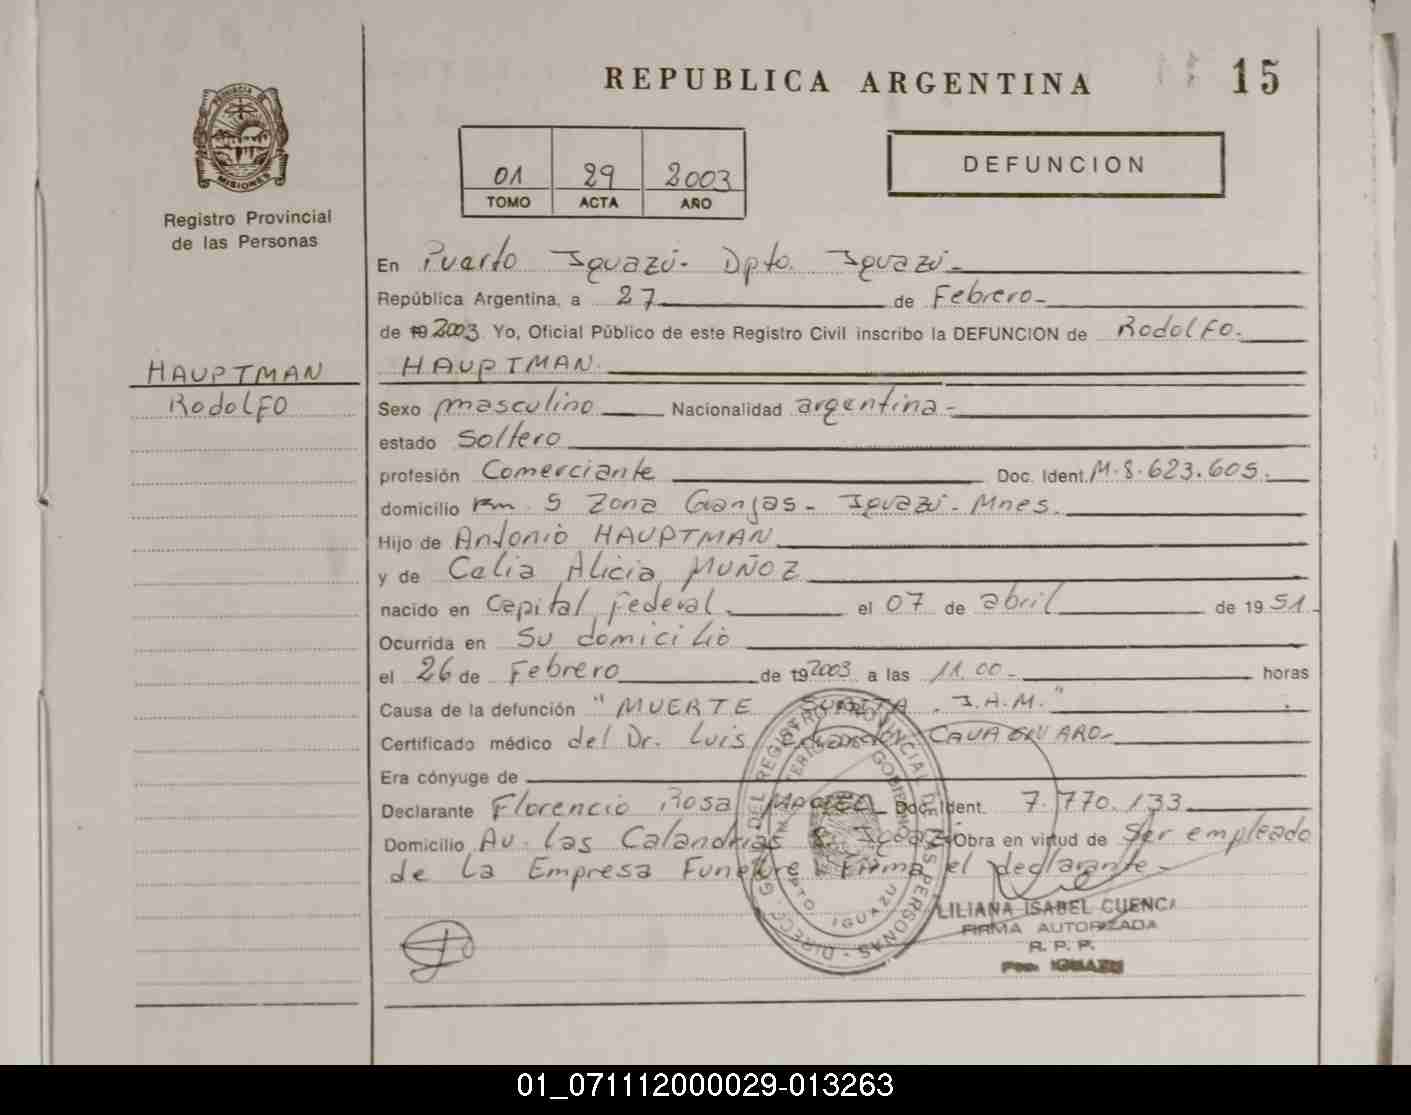 REPUBLICA ARGENTINA
15
PROVINCIA DE
MISIONES
Registro Provincial
de las Personas
01 29 2003
TOMO ACTA AÑO
DEFUNCION
HAUPTMAN
RodolFO
En Puerto Iguazú- Dpto. Iguazú-
República Argentina, a 27 de Febrero-
de 19 2003 Yo, Oficial Público de este Registro Civil inscribo la DEFUNCION de RodolFO.
HAUPTMAN.
Sexo masculino Nacionalidad argentina-
estado Soltero
profesión Comerciante Doc. Ident. M.8.623.605.
domicilio Km 5 Zona Granjas- Iguazú- Mnes.
Hijo de Antonio HAUPTMAN
y de Celia Alicia MUÑOZ
nacido en Capital Federal. el 07 de abril de 19 51.
Ocurrida en Su domicilio
el 26 de Febrero de 19 2003 a las 11.00- horas
Causa de la defunción "MUERTE SUBITA. I.A.M."
Certificado médico del Dr. Luis Eduardo CAVAGNARO-
Era cónyuge de
Declarante Florencio Rosa Doc. Ident. 7.770.133
Domicilio Av. las Calandrias Iguazú Obra en virtud de Ser empleado
de la Empresa Funebre. Firma el declarante-
DIRECC. GRAL. DEL REGISTRO PROVINCIAL DE LAS PERSONAS
MINISTERIO GOBIERNO
PTO IGUAZU
LILIANA ISABEL CUENCA
FIRMA AUTORIZADA
R. P. P.
Pto. IGUAZU
01_071112000029-013263